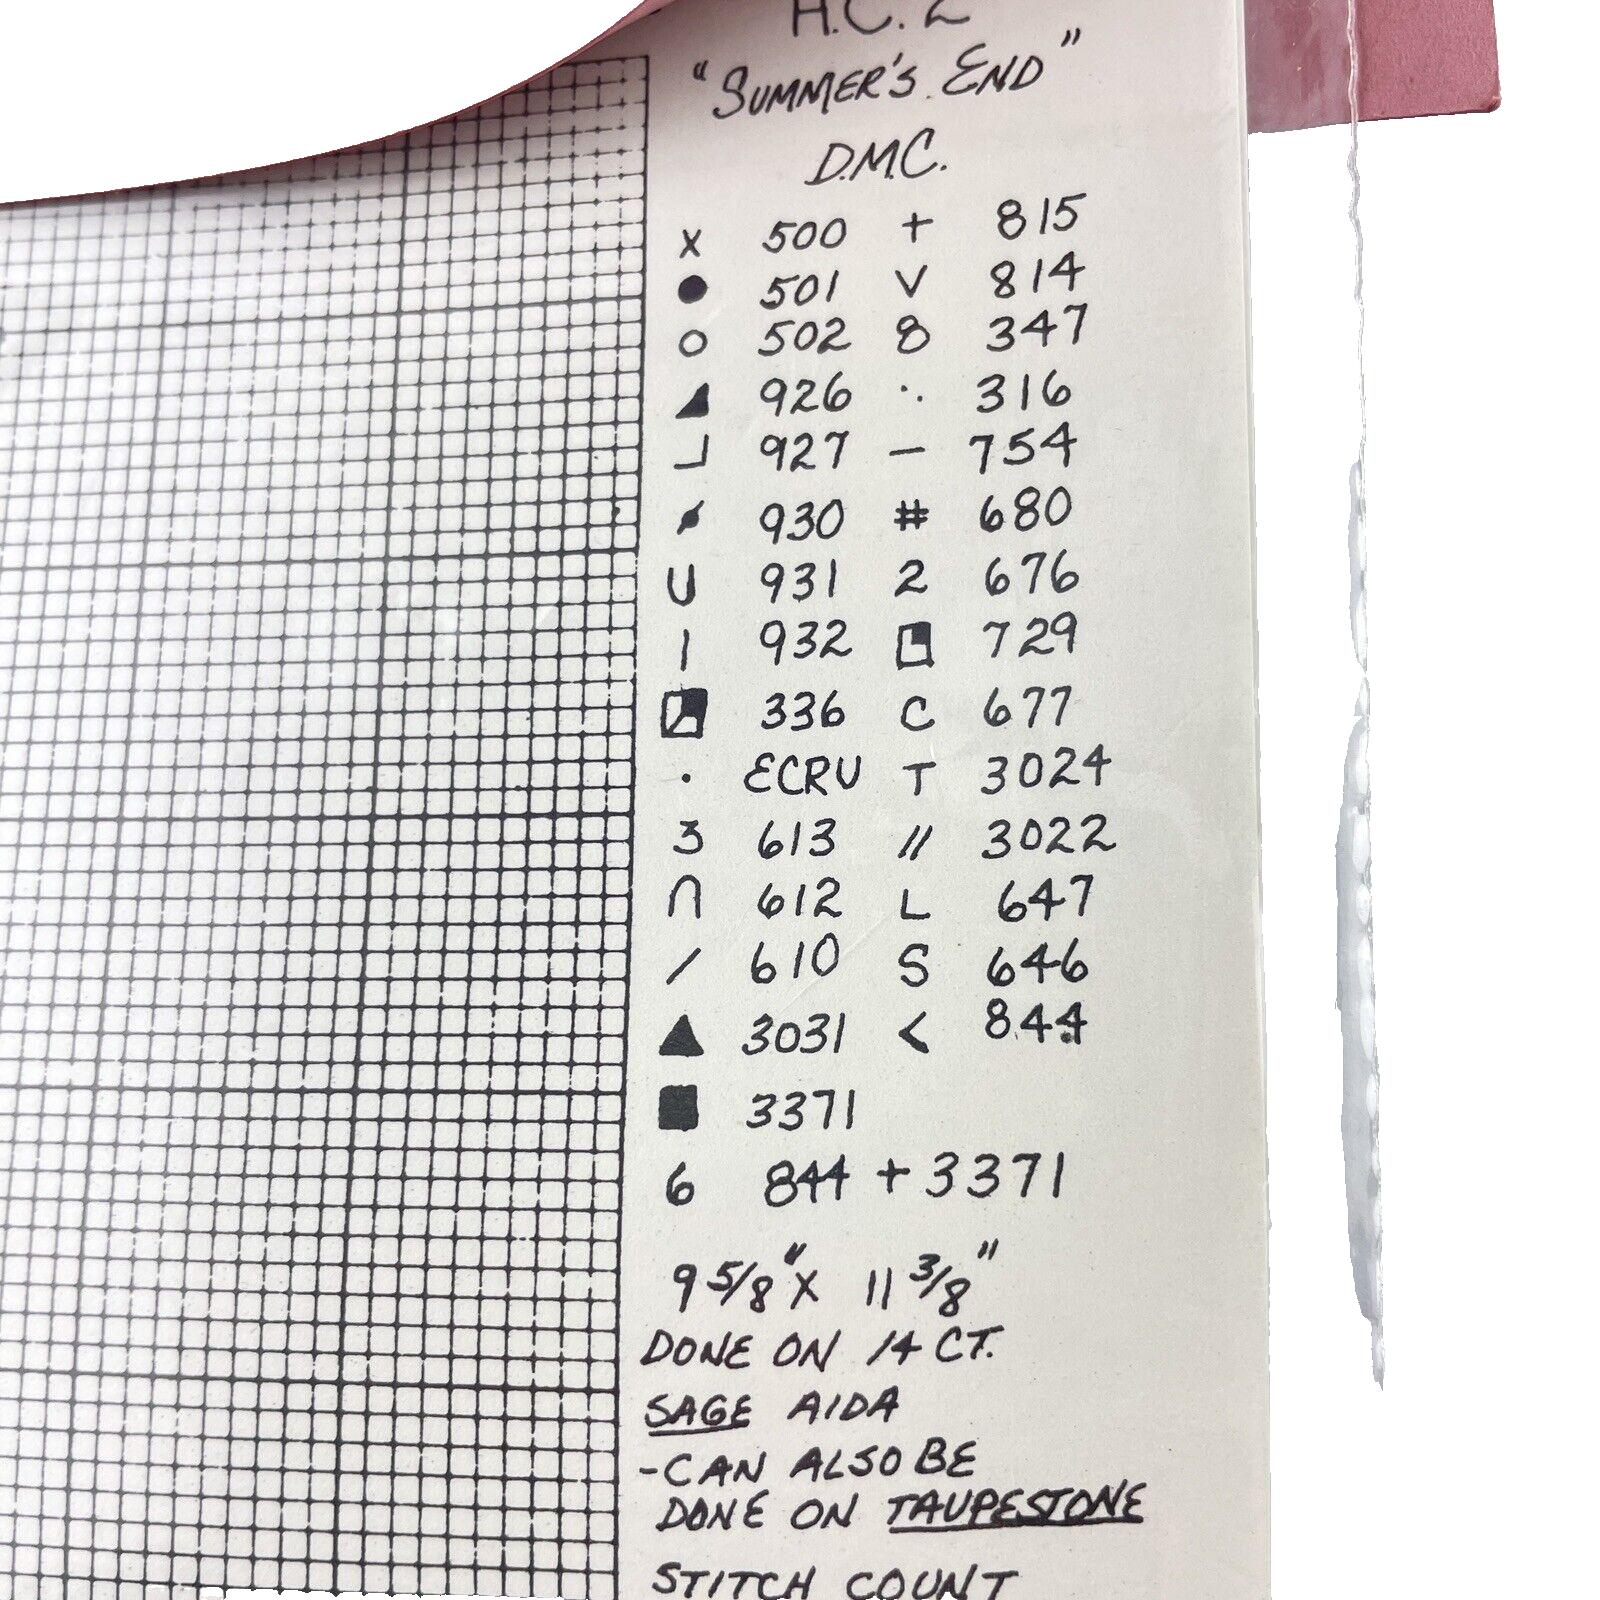 H.C. 2
"SUMMER'S END"
D.M.C.
X 500 + 815
● 501 V 814
○ 502 8 347
◢ 926 · 316
┘ 927 — 754
930 # 680
U 931 2 676
| 932 729
336 C 677
· ECRU T 3024
3 613 // 3022
∩ 612 L 647
/ 610 S 646
▲ 3031 < 844
■ 3371
6 844 + 3371
9 5/8" X 11 3/8"
DONE ON 14 CT.
SAGE AIDA
-CAN ALSO BE
DONE ON TAUPESTONE
STITCH COUNT